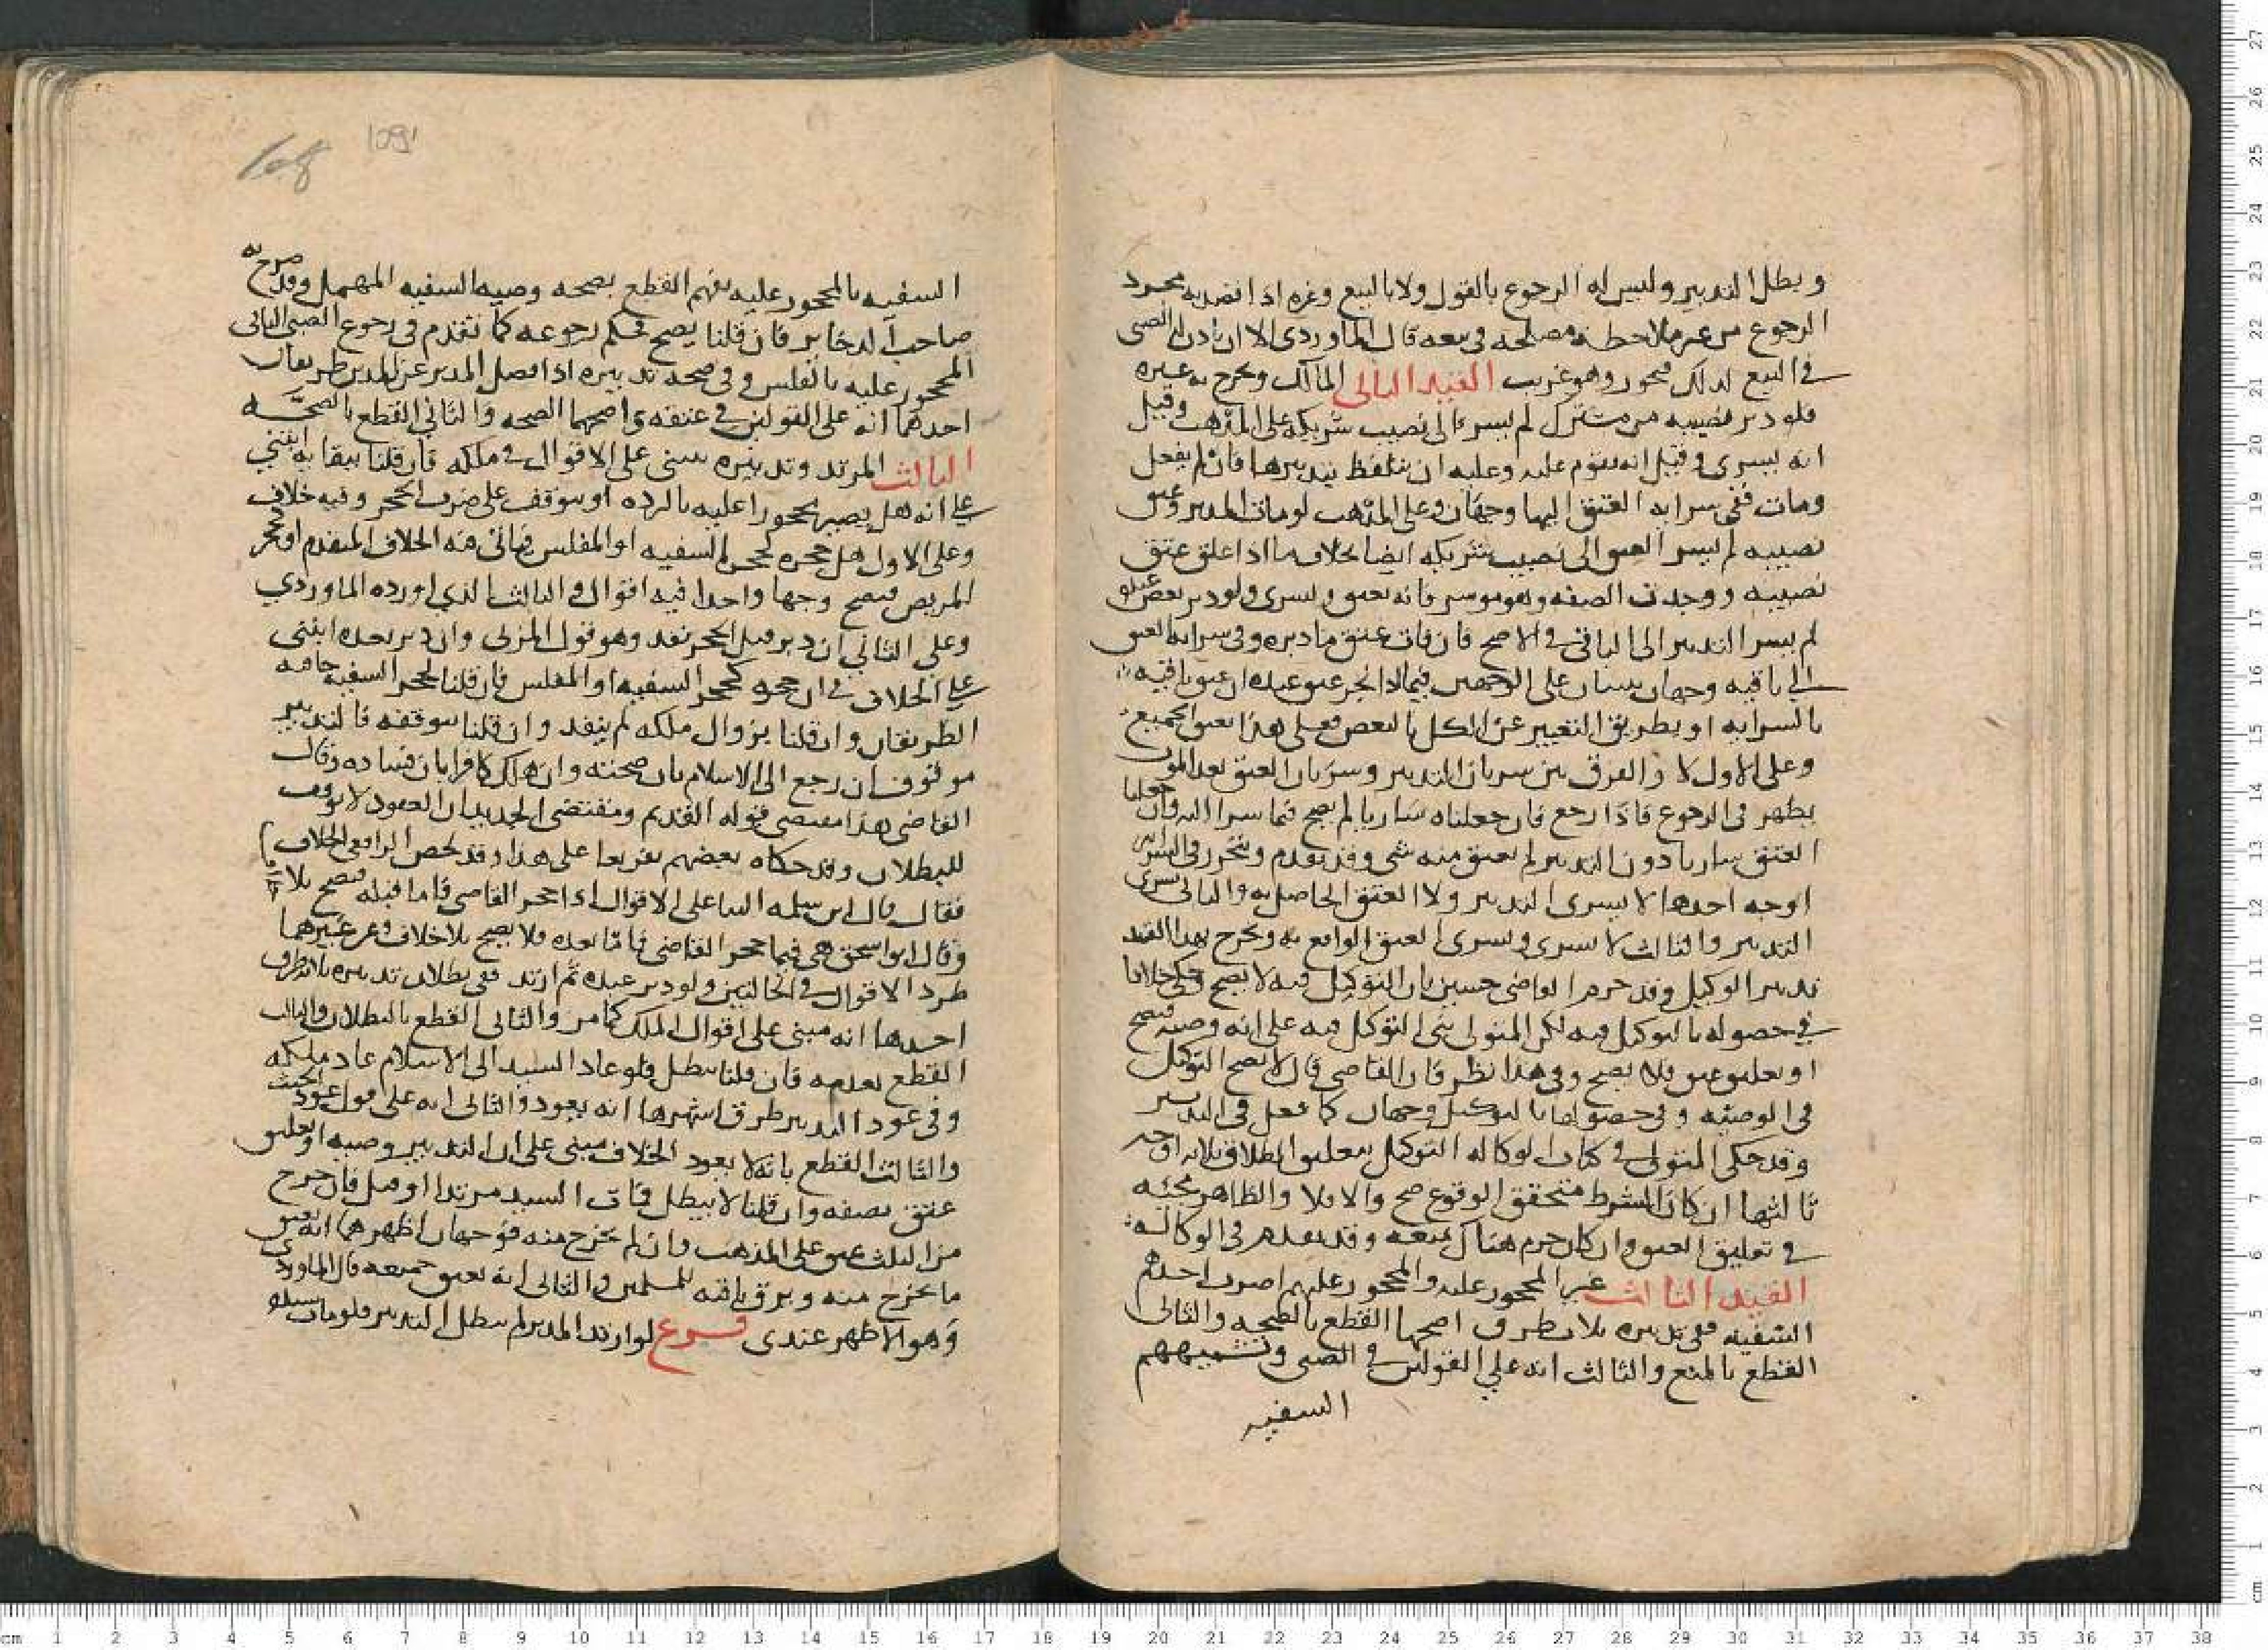 ويطل التدبير وليس له الرجوع بالقول ولا بالبيع وغيره اذا قصد به مجرد
الرجوع من غير ملاحظة مصلحه في بيعه قال الماوردي الا ان ياذن له الصبي
في البيع لذلك فيجوز وهو غريب القيد الثاني المالك ويخرج به غيره
فلو دبر نصيبه من مشترك لم يسر الى نصيب شريكه على المذهب وقيل
انه يسري وقيل انه يقوم عليه وعليه ان يتلفظ بتدبيرها فان لم يفعل
ومات ففي سراية العتق اليها وجهان وعلى المذهب لو مات المدبر وعتق
نصيبه لم يسر العتق الى نصيب شريكه ايضا بخلاف ما اذا علق عتق
نصيبه ووجدت الصفه وهو موسر فانه يعتق ويسري ولو دبر بعض عبده
لم يسر التدبير الى الباقي في الاصح فان مات عتق ما دبره وفي سراية العتق
الى باقيه وجهان يبنيان على الوجهين فيما اذا نجز عتق عبده ان عتق باقيه
بالسرايه او بطريق التعبير عن الكل بالبعض فعلى هذا يعتق الجميع
وعلى الاول لا والفرق بين سريان التدبير وسريان العتق بعد الموت
يظهر في الرجوع فاذا رجع فان جعلناه ساريا لم يصح فيما سرا اليه وان جعلنا
العتق ساريا دون التدبير لم يعتق منه شي وقد تقدم ويتحرر في
اوجه احدها لا يسري التدبير ولا العتق الحاصل به والثاني يسري
التدبير والثالث لا يسري ويسري العتق الواقع به ويخرج بهذا القيد
تدبير الوكيل وقد جزم القاضي حسين بان التوكيل فيه لا يصح وحكى خلافا
في حصوله بالتوكيل فيه لكن المتولي بنى التوكيل فيه على انه وصيه فيصح
او تعليق عتق فلا يصح وفي هذا نظر فان القاضي قال لا يصح التوكيل
في الوصيه وفي حصولها بالتوكيل وجهان كما فعل في التدبير
وقد حكى المتولي في كتاب الوكاله التوكيل بتعليق الطلاق ثلاثه اوجه
ثالثها ان كان الشرط متحقق الوقوع صح والا فلا والظاهر مجيئه
في تعليق العتق وان كان جزم هناك بمنعه وقد تقدم في الوكاله
القيد الثالث غير المحجور عليه والمحجور عليهم اضرب احدهم
السفيه ففي تدبيره ثلاث طرق اصحها القطع بالصحه والثاني
القطع بالمنع والثالث انه على القولين في الصبي وتشبيههم
السفيه
السفيه بالمحجور عليه يفهم القطع بصحه وصيه السفيه المهمل وقد صرح به
صاحب الذخاير فان قلنا يصح فحكم رجوعه كما تقدم في رجوع الصبي الثاني
المحجور عليه بالفلس وفي صحه تدبيره اذا فصل المدبر عن الدين طريقان
احدهما انه على القولين في عتقه واصحهما الصحه والثاني القطع بالصحه
الثالث المرتد وتدبيره يبنى على الاقوال في ملكه فان قلنا ببقايه ابتني
على انه هل يصير محجورا عليه بالرده او يتوقف على ضرب الحجر وفيه خلاف
وعلى الاول هل حجره كحجر السفيه او المفلس فياتي فيه الخلاف المتقدم او كحجر
المريض فيصح وجها واحدا فيه اقوال في الثالث الذي اورده الماوردي
وعلى الثاني ان دبر قبل الحجر نفذ وهو قول المزني وان دبر بعده ابتنى
على الخلاف في ان حجره كحجر السفيه او المفلس فان قلنا كحجر السفيه جا فيه
الطريقان وان قلنا بزوال ملكه لم ينفذ وان قلنا بتوقفه فالتدبير
موقوف ان رجع الى الاسلام بان صحته وان هلك كافرا بان فساده وقال
القاضي هذا مقتضى قوله القديم ومقتضى الجديد ان العقود لا توقف
للبطلان وقد حكاه بعضهم تفريعا على هذا وقد لخص الرافعي الخلاف
فقال قال ابن سلمه البنا على الاقوال اذا حجر القاضي فاما قبله فيصح بلا
وقال ابو اسحق هي فيما حجر القاضي فاما بعده فلا يصح بلا خلاف وعن غيرهما
طرد الاقوال في الحالتين ولو دبر عبده ثم ارتد ففي بطلان تدبيره ثلاثه طرق
احدها انه مبني على اقوال الملك كما مر والثاني القطع بالبطلان والثالث
القطع بعدمه فان قلنا يبطل فلو عاد السيد الى الاسلام عاد ملكه
وفي عود التدبير طرق اشهرها انه يعود والثاني انه على قولي عود الحنث
والثالث القطع بانه لا يعود الخلاف مبني على ان التدبير وصيه او تعليق
عتق بصفه وان قلنا لا يبطل فمات السيد مرتدا او قتل فان خرج
من الثلث عتق على المذهب وان لم يخرج منه فوجهان اظهرهما انه يعتق
ما يخرج منه ويرق باقيه للمسلمين والثاني انه يعتق جميعه قال الماوردي
وهو الاظهر عندي فرع لو ارتد المدبر لم يبطل التدبير فلو مات سيده